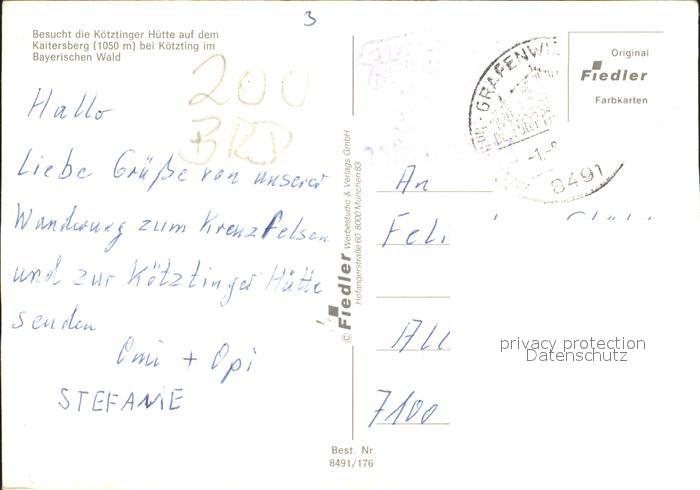 3
Besucht die Kötztinger Hütte auf dem
Kaitersberg (1050 m) bei Kötzting im
Bayerischen Wald
200
BRD
Hallo
Liebe Grüße von unserer
Wanderung zum Kreuzfelsen
und zur Kötztinger Hütte
senden
Omi + Opi
STEFANIE
© Fiedler Werbestudio & Verlags GmbH
Hofangerstraße 60 8000 München 83
Best. Nr.
8491/176
GRAFENWI
-1.-8
8491
Original
Fiedler
Farbkarten
An
Feli
All
7100
privacy protection
Datenschutz